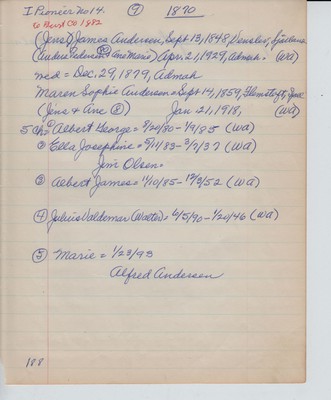 I Pioneer No 14. ⑨ 1870
to Burt Co 1882
(Jens) James Andersen, Sept 13, 1848,
(Andrew Pedersen & Ane Marie) Apr. 21, 1929, Admah. (Wa)
md = Dec. 29, 1879, Admah
Maren Sophie Andersen = Sept 14, 1859,
(Jens & Ane ②) Jan 21, 1918, (Wa)
5 ch ① Albert George = 9/20/80 - 1/9/85 (Wa)
② Ella Josephine = 5/11/83 - 3/9/37 (Wa)
Jim Olsen.
③ Albert James = 11/10/85 - 12/3/52 (Wa)
④ Julius Valdemar Walter = 6/5/90 - 1/20/46 (Wa)
⑤ Marie = 1/23/93
Alfred Andersen
188